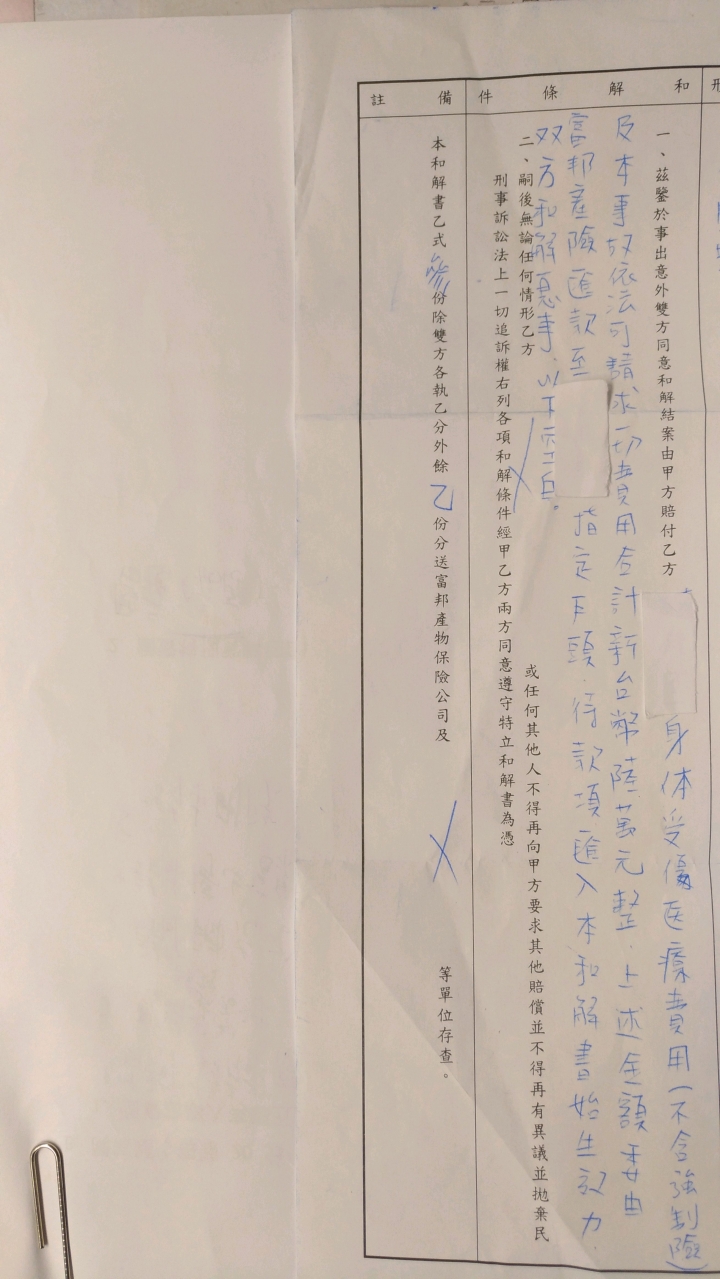 和解條件
一、茲鑒於事出意外雙方同意和解結案由甲方賠付乙方 身体受傷医療費用(不含強制險)
及本事故依法可請求一切費用合計新台幣陸萬元整.上述金額委由
富邦產險匯款至 指定戶頭.待款項匯入本和解書始生効力
双方和解息事.以下空白.
二、嗣後無論任何情形乙方 或任何其他人不得再向甲方要求其他賠償並不得再有異議並拋棄民
刑事訴訟法上一切追訴權右列各項和解條件經甲乙方兩方同意遵守特立和解書為憑
備註
本和解書乙式參份除雙方各執乙分外餘乙份分送富邦產物保險公司及 等單位存查。